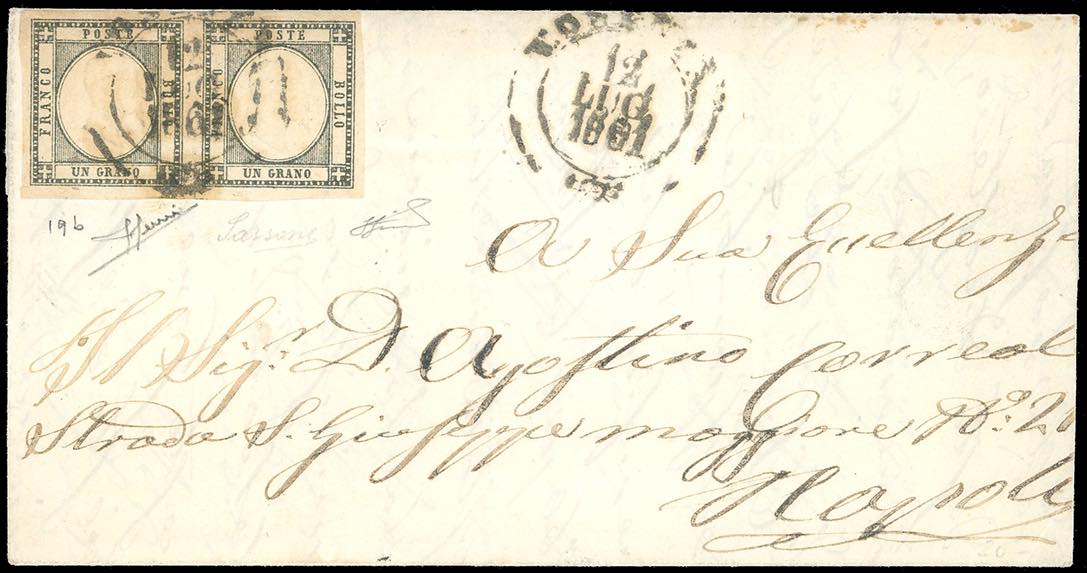 POSTE POSTE
FRANCO BOLLO FRANCO BOLLO
UN GRANO UN GRANO
12
LUG
1861
19b
Sassone
A Sua Eccellenza
Il Sigr. D. Agostino Correal
Strada S. Giuseppe maggiore No. 2
Napoli